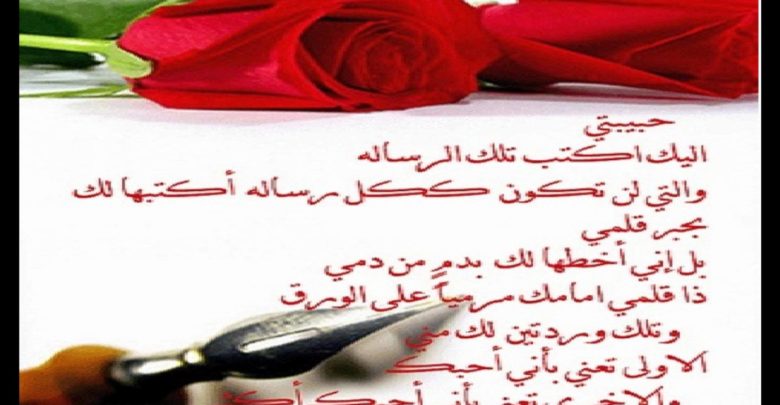 حبيبتي
اليك اكتب تلك الرساله
والتي لن تكون ككل رساله أكتبها لك
بحبر قلمي
بل إني أخطها لك بدمٍ من دمي
ذا قلمي امامك مرمياً على الورق
وتلك وردتين لك مني
الاولى تعني بأني أحبك
والاخرى تعني بأني أحبك أكثر